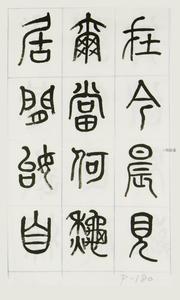 在今晨見
爾當何秋
居閒始自
P-180